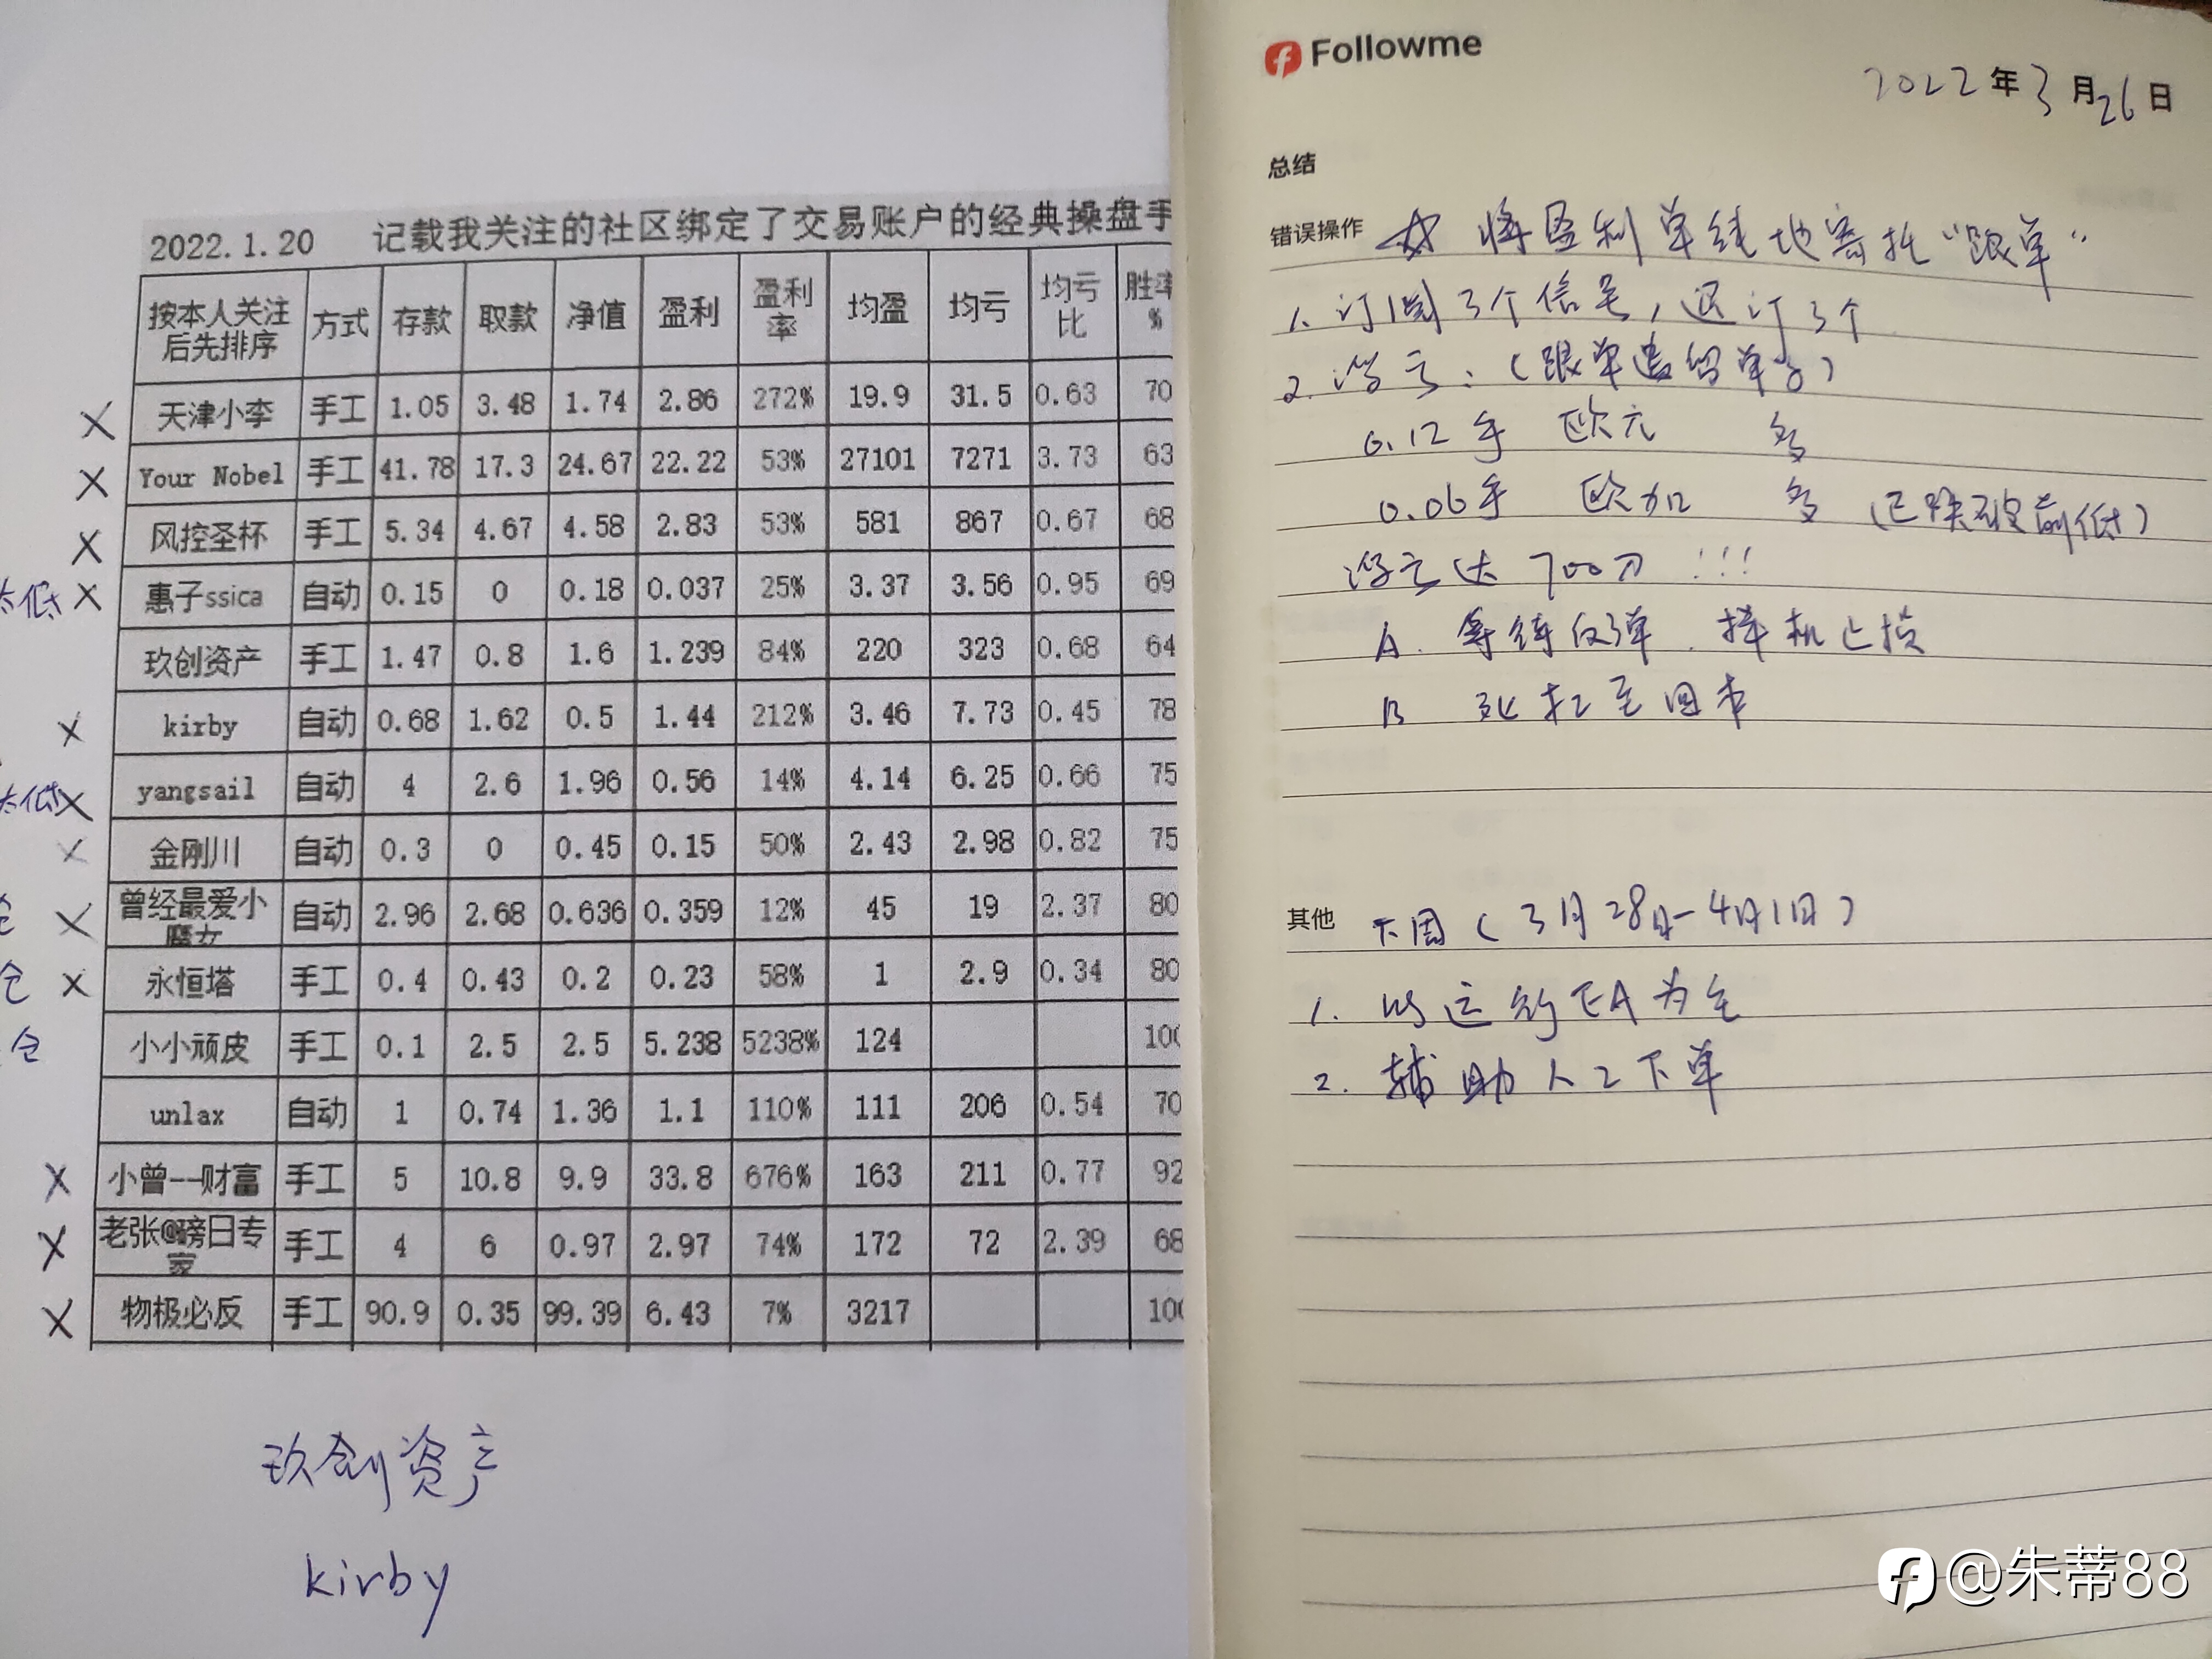 2022.1.20 记载我关注的社区绑定了交易账户的经典操盘手
按本人关注后先排序 方式 存款 取款 净值 盈利 盈利率 均盈 均亏 均亏比 胜率%
× 天津小李 手工 1.05 3.48 1.74 2.86 272% 19.9 31.5 0.63 70
× Your Nobel 手工 41.78 17.3 24.67 22.22 53% 27101 7271 3.73 63
× 风控圣杯 手工 5.34 4.67 4.58 2.83 53% 581 867 0.67 68
太低 × 惠子ssica 自动 0.15 0 0.18 0.037 25% 3.37 3.56 0.95 69
玖创资产 手工 1.47 0.8 1.6 1.239 84% 220 323 0.68 64
× kirby 自动 0.68 1.62 0.5 1.44 212% 3.46 7.73 0.45 78
太低 × yangsail 自动 4 2.6 1.96 0.56 14% 4.14 6.25 0.66 75
× 金刚川 自动 0.3 0 0.45 0.15 50% 2.43 2.98 0.82 75
× 曾经最爱小魔女 自动 2.96 2.68 0.636 0.359 12% 45 19 2.37 80
仓 × 永恒塔 手工 0.4 0.43 0.2 0.23 58% 1 2.9 0.34 80
仓 小小顽皮 手工 0.1 2.5 2.5 5.238 5238% 124 100
unlax 自动 1 0.74 1.36 1.1 110% 111 206 0.54 70
× 小曾--财富 手工 5 10.8 9.9 33.8 676% 163 211 0.77 92
× 老张@磅日专家 手工 4 6 0.97 2.97 74% 172 72 2.39 68
× 物极必反 手工 90.9 0.35 99.39 6.43 7% 3217 100
玖创资产
kirby
Followme
2022年3月26日
总结
错误操作 ☆ 将盈利单纯地寄托“跟单”
1. 订阅3个信号，退订3个
2. 浮亏：（跟单遗留单子）
0.12手 欧元 多
0.06手 欧加 多 （已跌破前低）
浮亏达700刀!!!
A. 等待反弹．择机止损
B 死扛至回本
其他 下周（3月28日-4月1日）
1. 以运行EA为主
2. 辅助人工下单
@朱蒂88